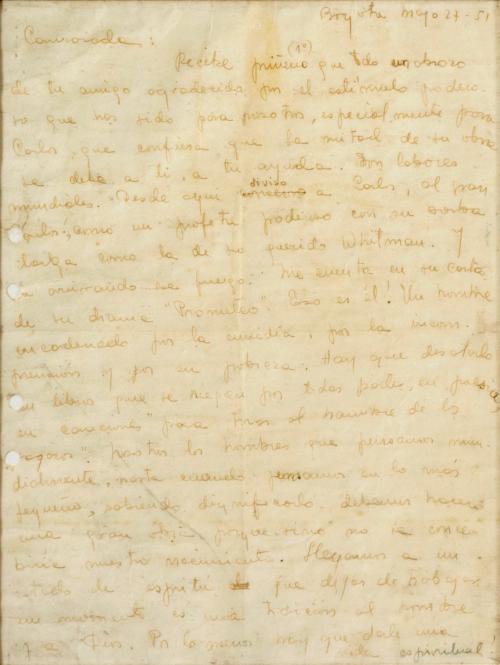 Bogotá Mayo 27-51
Camarada:
Recibe primero (1º) que todo un abrazo
de tu amigo agradecido, por el estímulo podero-
so que has sido para nosotros, especialmente para
Carlos, que confiesa que la mitad de su obra
se debe a ti, a tu ayuda. Son labores
mundiales. Desde aqui diviso a Carlos, al gran
Carlos, como un profeta poderoso con su barba
larga como la de su querido Whitman. Y
fuego. Me cuenta en su carta
de su drama "Prometeo". Eso es él! Un hombre
encadenado por la envidia, por la incom-
prensión y por su pobreza. Hay que desatarlo
un libro que se riegan por todas partes, en
en camiones para el hambre de los
Nosotros los hombres que pensamos mun-
dialmente, hasta cuando pensamos en lo más
pequeño, sabiendo dignificarlo, debemos hacer
una gran obra porque sino no se conce-
biria nuestro nacimiento. Llegamos a un
estado de espiritu que dejar de trabajar
un momento es una traición al hombre
y a Dios. Por lo menos hay que darle una
vida espiritual